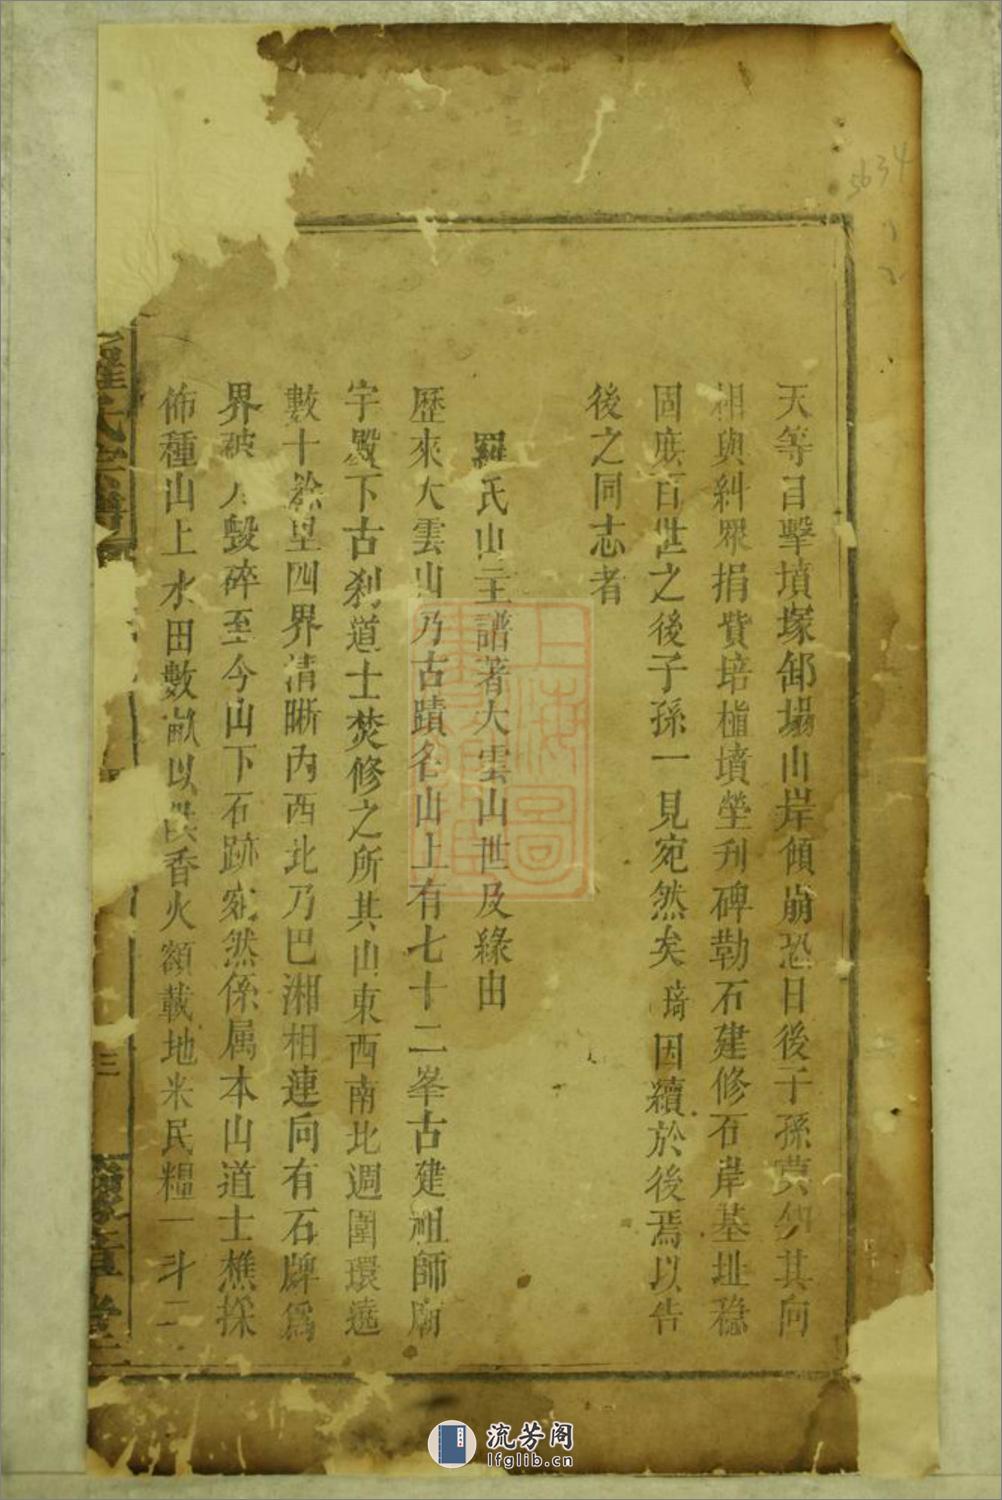 天等目擊墳塚卸塌山岸傾崩恐日後子孫莫知其向
相與糾眾捐貲培植墳塋刋碑勒石建修石岸基址稳
固庶百世之後子孫一見宛然矣 琦因續於後焉以告
後之同志者
羅氏山主譜著大雲山世及緣由
歷來大雲山乃古蹟名山上有七十二峯古建祖師廟
宇殿下古刹道士焚修之所其山東西南北週圍環遶
數十餘里四界清晰內西北乃巴湘相連向有石牌爲
界被人毀碎至今山下石跡宛然係属本山道士樵採
佈種山上水田數畝以供香火額載地米民糧一斗二
羅氏宗譜
三
豫章堂
上海圖書館藏
5634
流芳阁
lfglib.cn